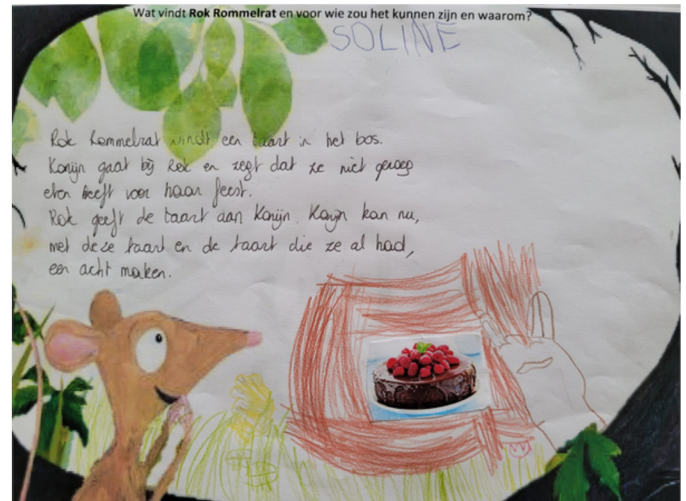 Wat vindt Rok Rommelrat en voor wie zou het kunnen zijn en waarom?
SOLINE
Rok Rommelrat windt een taart in het bos.
Konijn gaat bij Rok en zegt dat ze niet genoeg
eten heeft voor haar feest.
Rok geeft de taart aan Konijn. Konijn kan nu,
met deze taart en de taart die ze al had,
een acht maken.